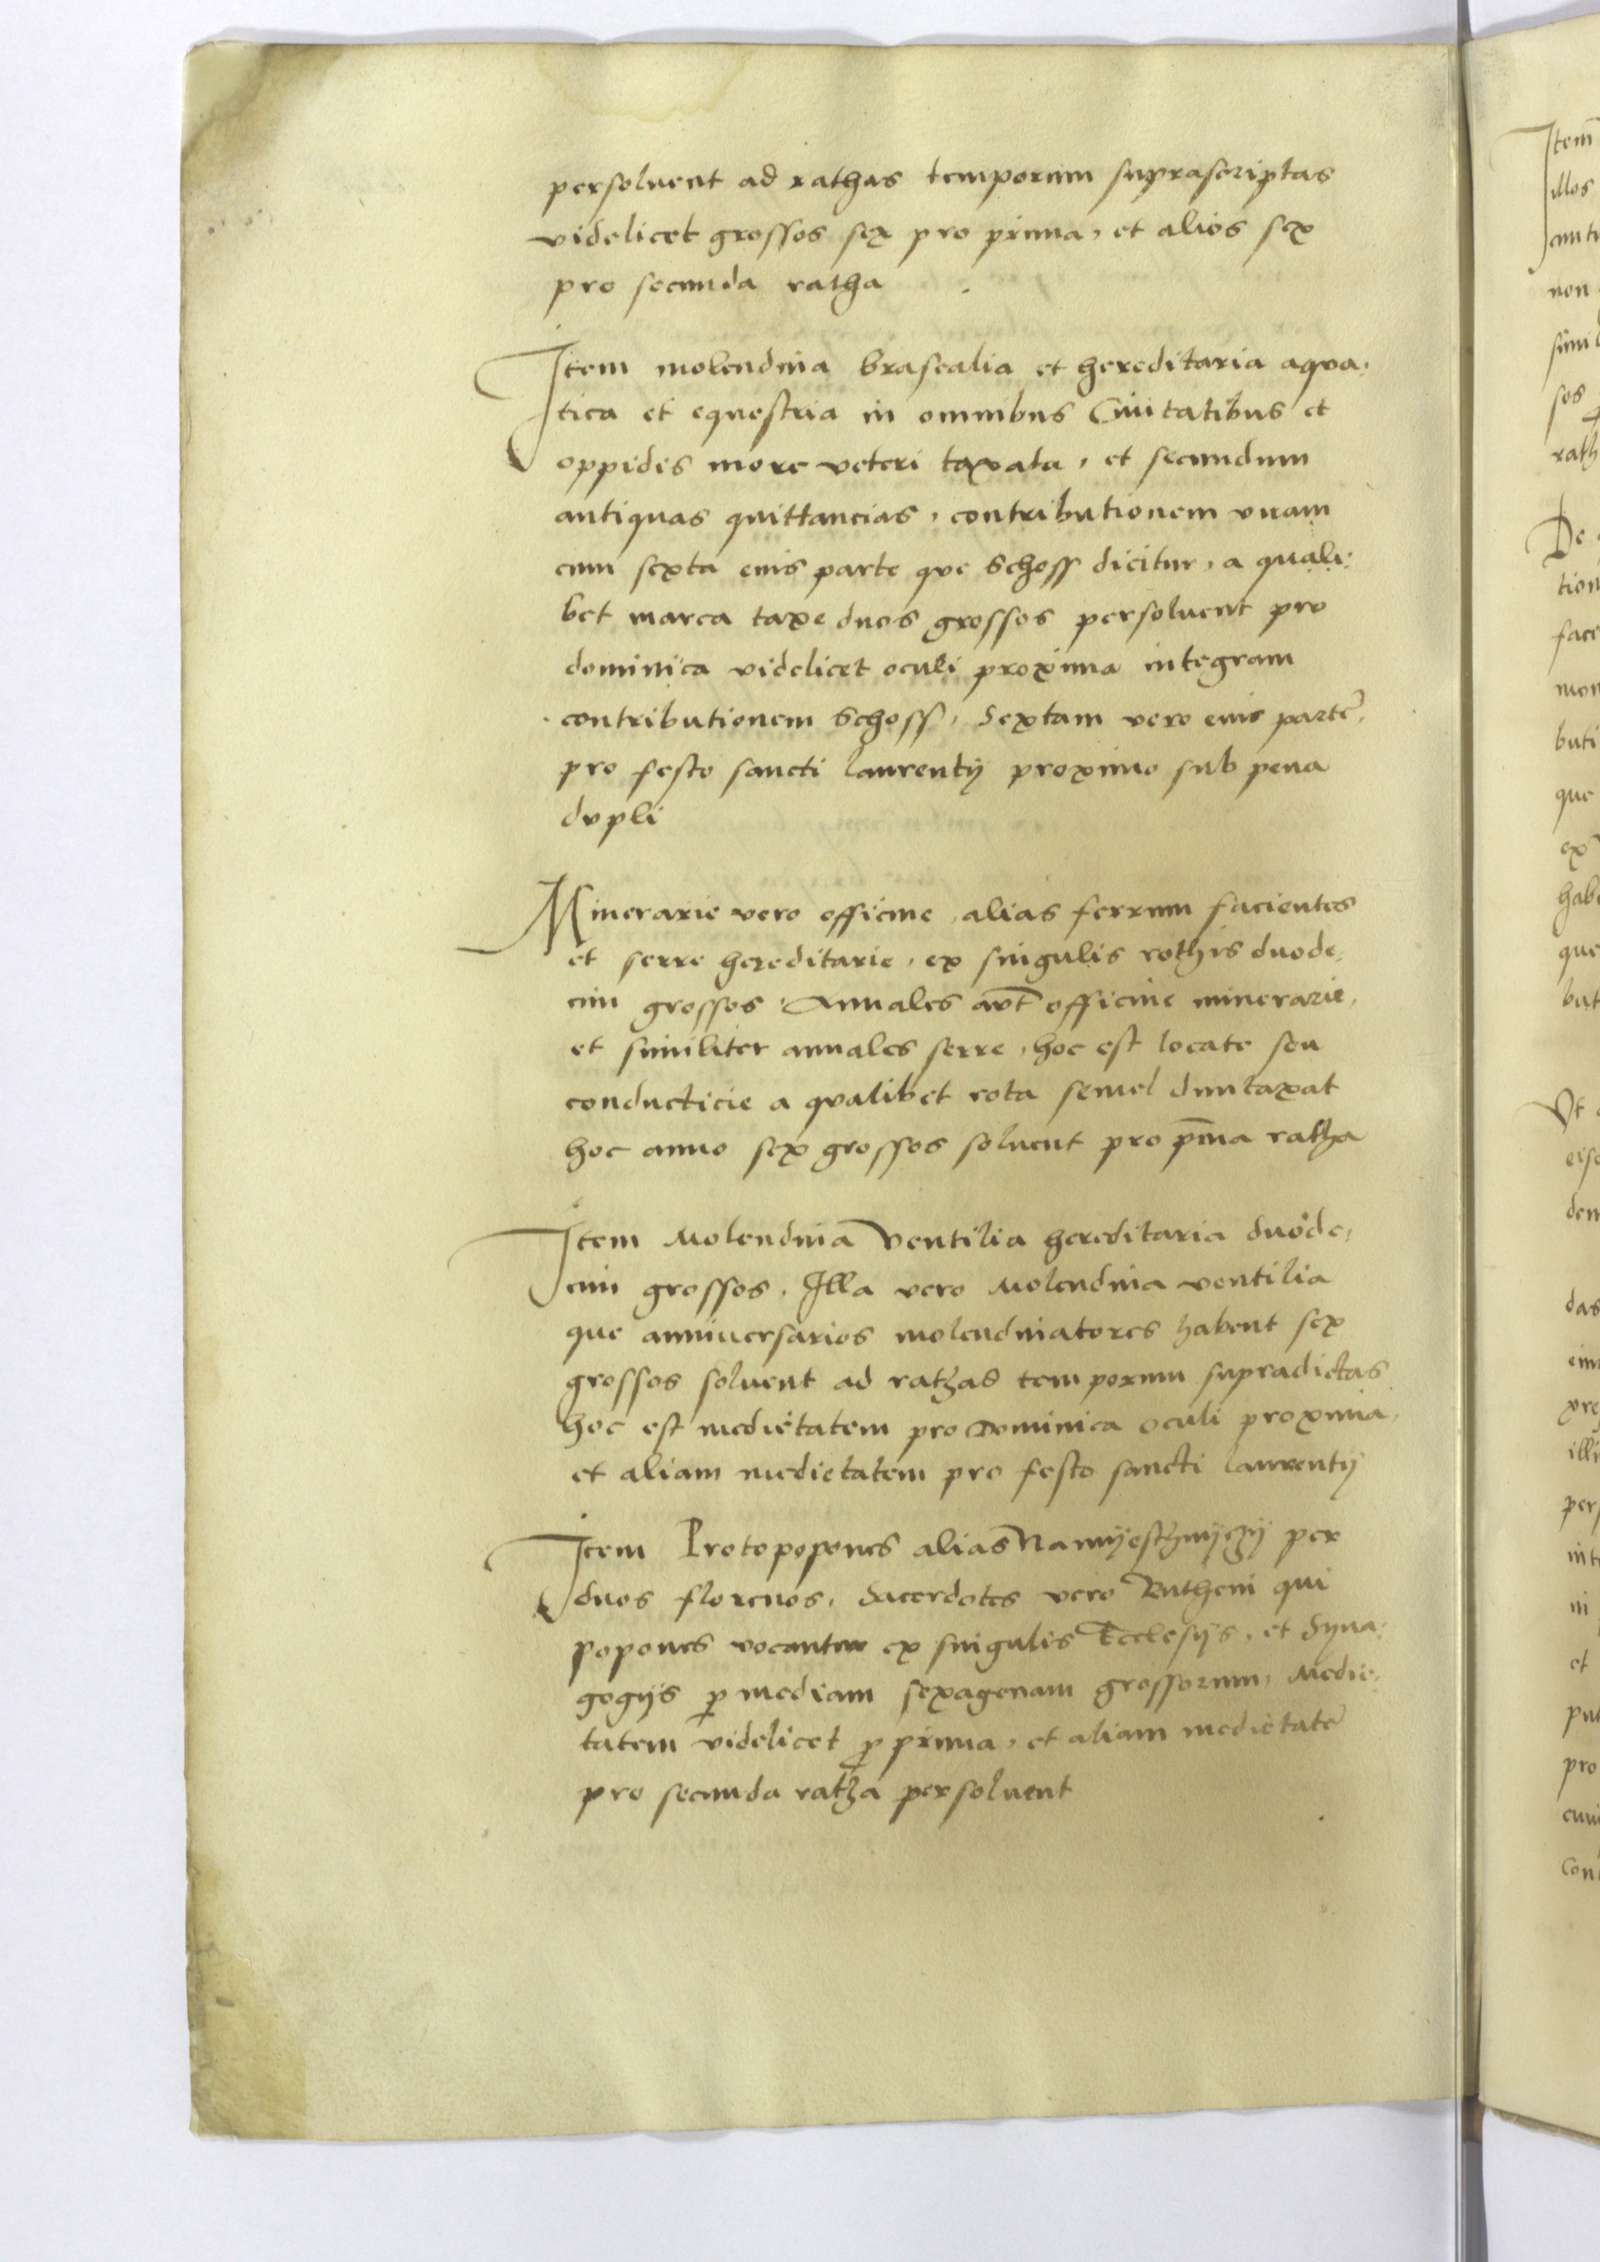 persoluent ad rathas temporum suprascriptas
videlicet grossos sex pro prima, et alios sex
pro secunda ratha
Item molendina brasealia et hereditaria aqua,
tica et equestria in omnibus Ciuitatibus et
oppidis more veteri taxata, et secundum
antiquas quittancias, contributionem vnam
cum sexta eius parte que Schoss dicitur, a quali,
bet marca taxe duos grossos persoluent pro
dominica videlicet oculi proxima integram
contributionem Schoss, Sextam vero eius parte͂,
pro festo sancti laurentij proximo sub pena
dupli
Minerarie vero officine, alias ferrum facientes
et serre hereditarie, ex singulis rothis duode,
cim grossos. Annales aut͂ officine minerarie,
et similiter annales serre, hoc est locate seu
conducticie a qualibet rota semel duntaxat
hoc anno sex grossos soluent pro p͂ma ratha
Item Molendina Ventilia hereditaria duode,
cim grossos. Illa vero Molendina ventilia
que anniuersarios molendinatores habent sex
grossos soluent ad rathas temporum supradictas
hoc est medietatem pro Dominica oculi proxima,
et aliam medietatem pro festo sancti laurentij
Item Protopopones alias Namyesthnyczy per
duos florenos. Sacerdotes vero Rutheni qui
popones vocantur ex singulis Ecclesijs, et Syna,
gogijs ꝑ mediam sexagenam grossorum, Medie,
tatem videlicet ꝓ prima, et aliam medietate͂
pro secunda ratha persoluent
Item͂
illos
non
simil
sos
rath
De
tion
buti
que
ex
habe
que
but
Vt
das
illi
pers
et
pro